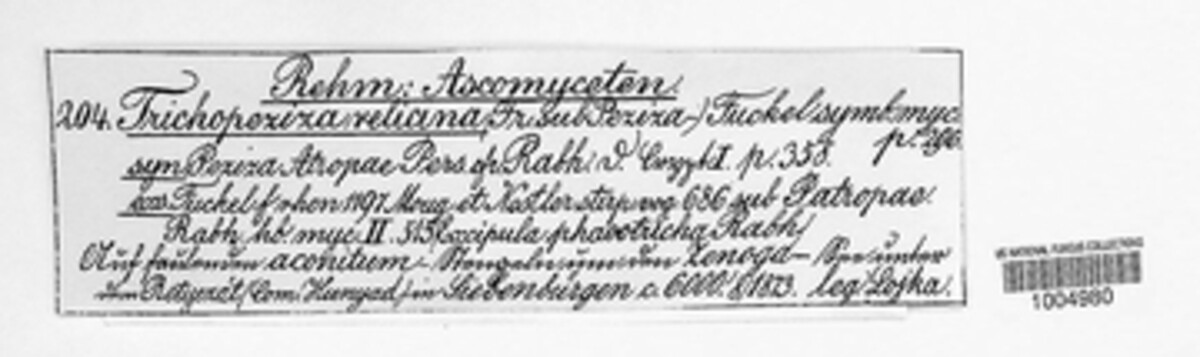 Rehm: Ascomyceten.
204. Trichopeziza relicina Fr. sub Peziza) Fuckel symb. myc. p. 296.
syn Peziza Atropae Pers. cfr. Rabh. D. Crypt. I. p. 358.
exs. Fuckel f. rhen 1197. Moug. et Nestler stirp. vog 686 sub P atropae.
Rabh. hb. myc. II. 515 (Excipula phaeotricha Rabh.)
Auf faulenden aconitum-Stengeln um den Zenoga-See unter
dem Retyezát (Com. Hunyad) in Siebenbürgen c. 6000'. 8/1873. leg Lojka.
US NATIONAL FUNGUS COLLECTIONS
1004980